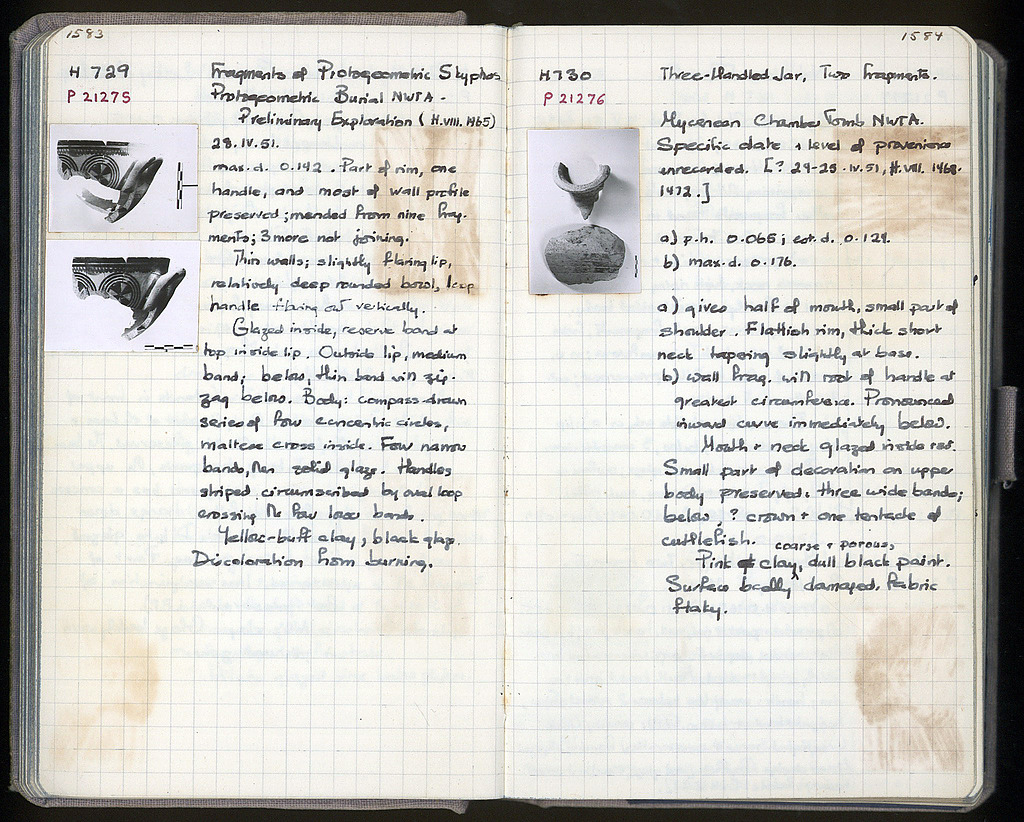 1583
H 729
P 21275
Fragments of Protogeometric Skyphos
Protogeometric Burial NWTA.
Preliminary Exploration (H.VIII.1465)
28.IV.51.
max.d. 0.142. Part of rim, one
handle, and most of wall profile
preserved; mended from nine frag-
ments; 3 more not joining.
Thin walls; slightly flaring lip,
relatively deep rounded bowl, loop
handle flaring out vertically.
Glazed inside, reserve band at
top inside lip. Outside lip, medium
band; below, thin band with zig-
zag below. Body: compass-drawn
series of four concentric circles,
maltese cross inside. Few narrow
bands, then solid glaze. Handles
striped, circumscribed by oval loop
crossing the few lower bands.
Yellow-buff clay, black glaze.
Discoloration from burning.
1584
H 730
P 21276
Three-Handled Jar, Two Fragments.
Mycenean Chamber Tomb NWTA.
Specific date + level of provenience
unrecorded. [? 24-25.IV.51, H.VIII.1468-
1472.]
a) p.h. 0.065; est.d. 0.129.
b) max.d. 0.176.
a) gives half of mouth, small part of
shoulder. Flattish rim, thick short
neck tapering slightly at base.
b) wall frag. with root of handle at
greatest circumference. Pronounced
inward curve immediately below.
Mouth + neck glazed inside +
Small part of decoration on upper
body preserved: three wide bands;
below, ? crown + one tentacle of
cuttlefish.
coarse + porous,
Pink clay, dull black paint.
Surface badly damaged. Fabric
flaky.